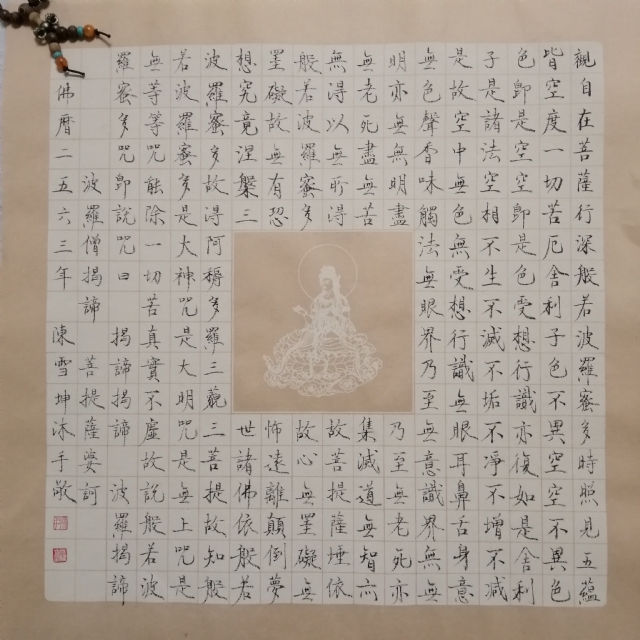 觀自在菩薩行深般若波羅蜜多時照見五蘊
皆空度一切苦厄舍利子色不異空空不異色
色即是空空即是色受想行識亦復如是舍利
子是諸法空相不生不滅不垢不淨不增不減
是故空中無色無受想行識無眼耳鼻舌身意
無色聲香味觸法無眼界乃至無意識界無無
明亦無無明盡 乃至無老死亦
無老死盡無苦 集滅道無智亦
無得以無所得 故菩提薩埵依
般若波羅蜜多 故心無罣礙無
罣礙故無有恐 怖遠離顛倒夢
想究竟涅槃三 世諸佛依般若
波羅蜜多故得阿耨多羅三藐三菩提故知般
若波羅蜜多是大神咒是大明咒是無上咒是
無等等咒能除一切苦真實不虛故說般若波
羅蜜多咒即說咒曰 揭諦揭諦 波羅揭諦
波羅僧揭諦 菩提薩婆訶
佛曆二五六三年 陳雪坤沐手敬